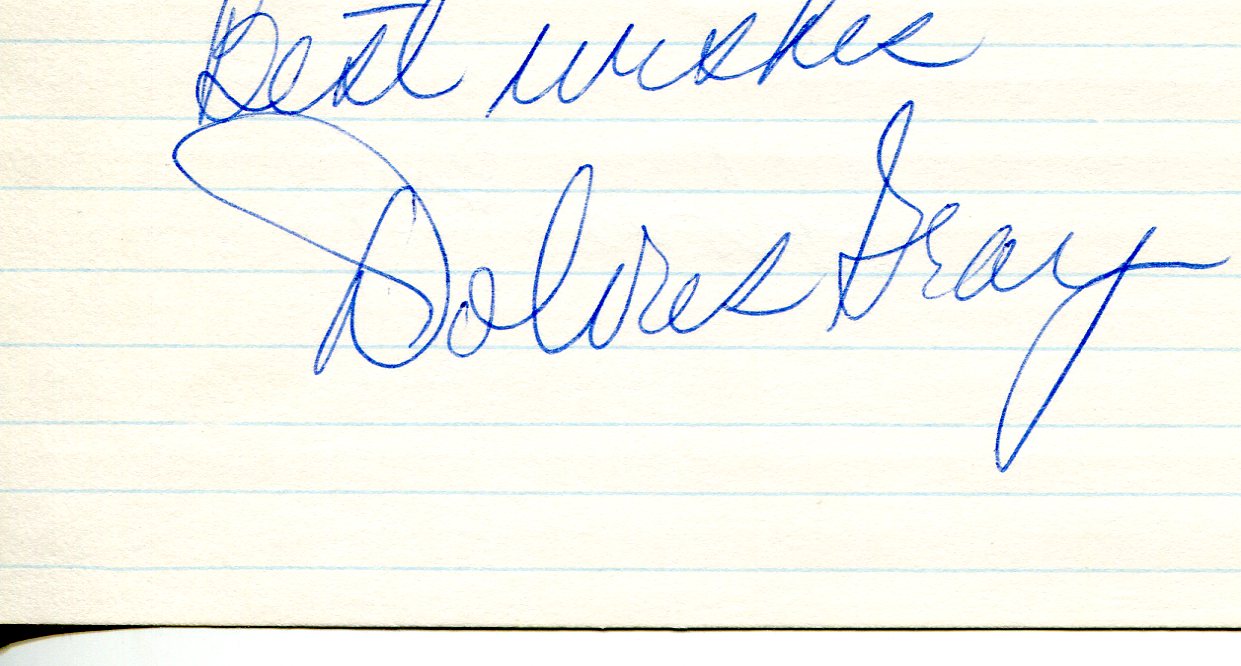 Best wishes
Dolores Gray